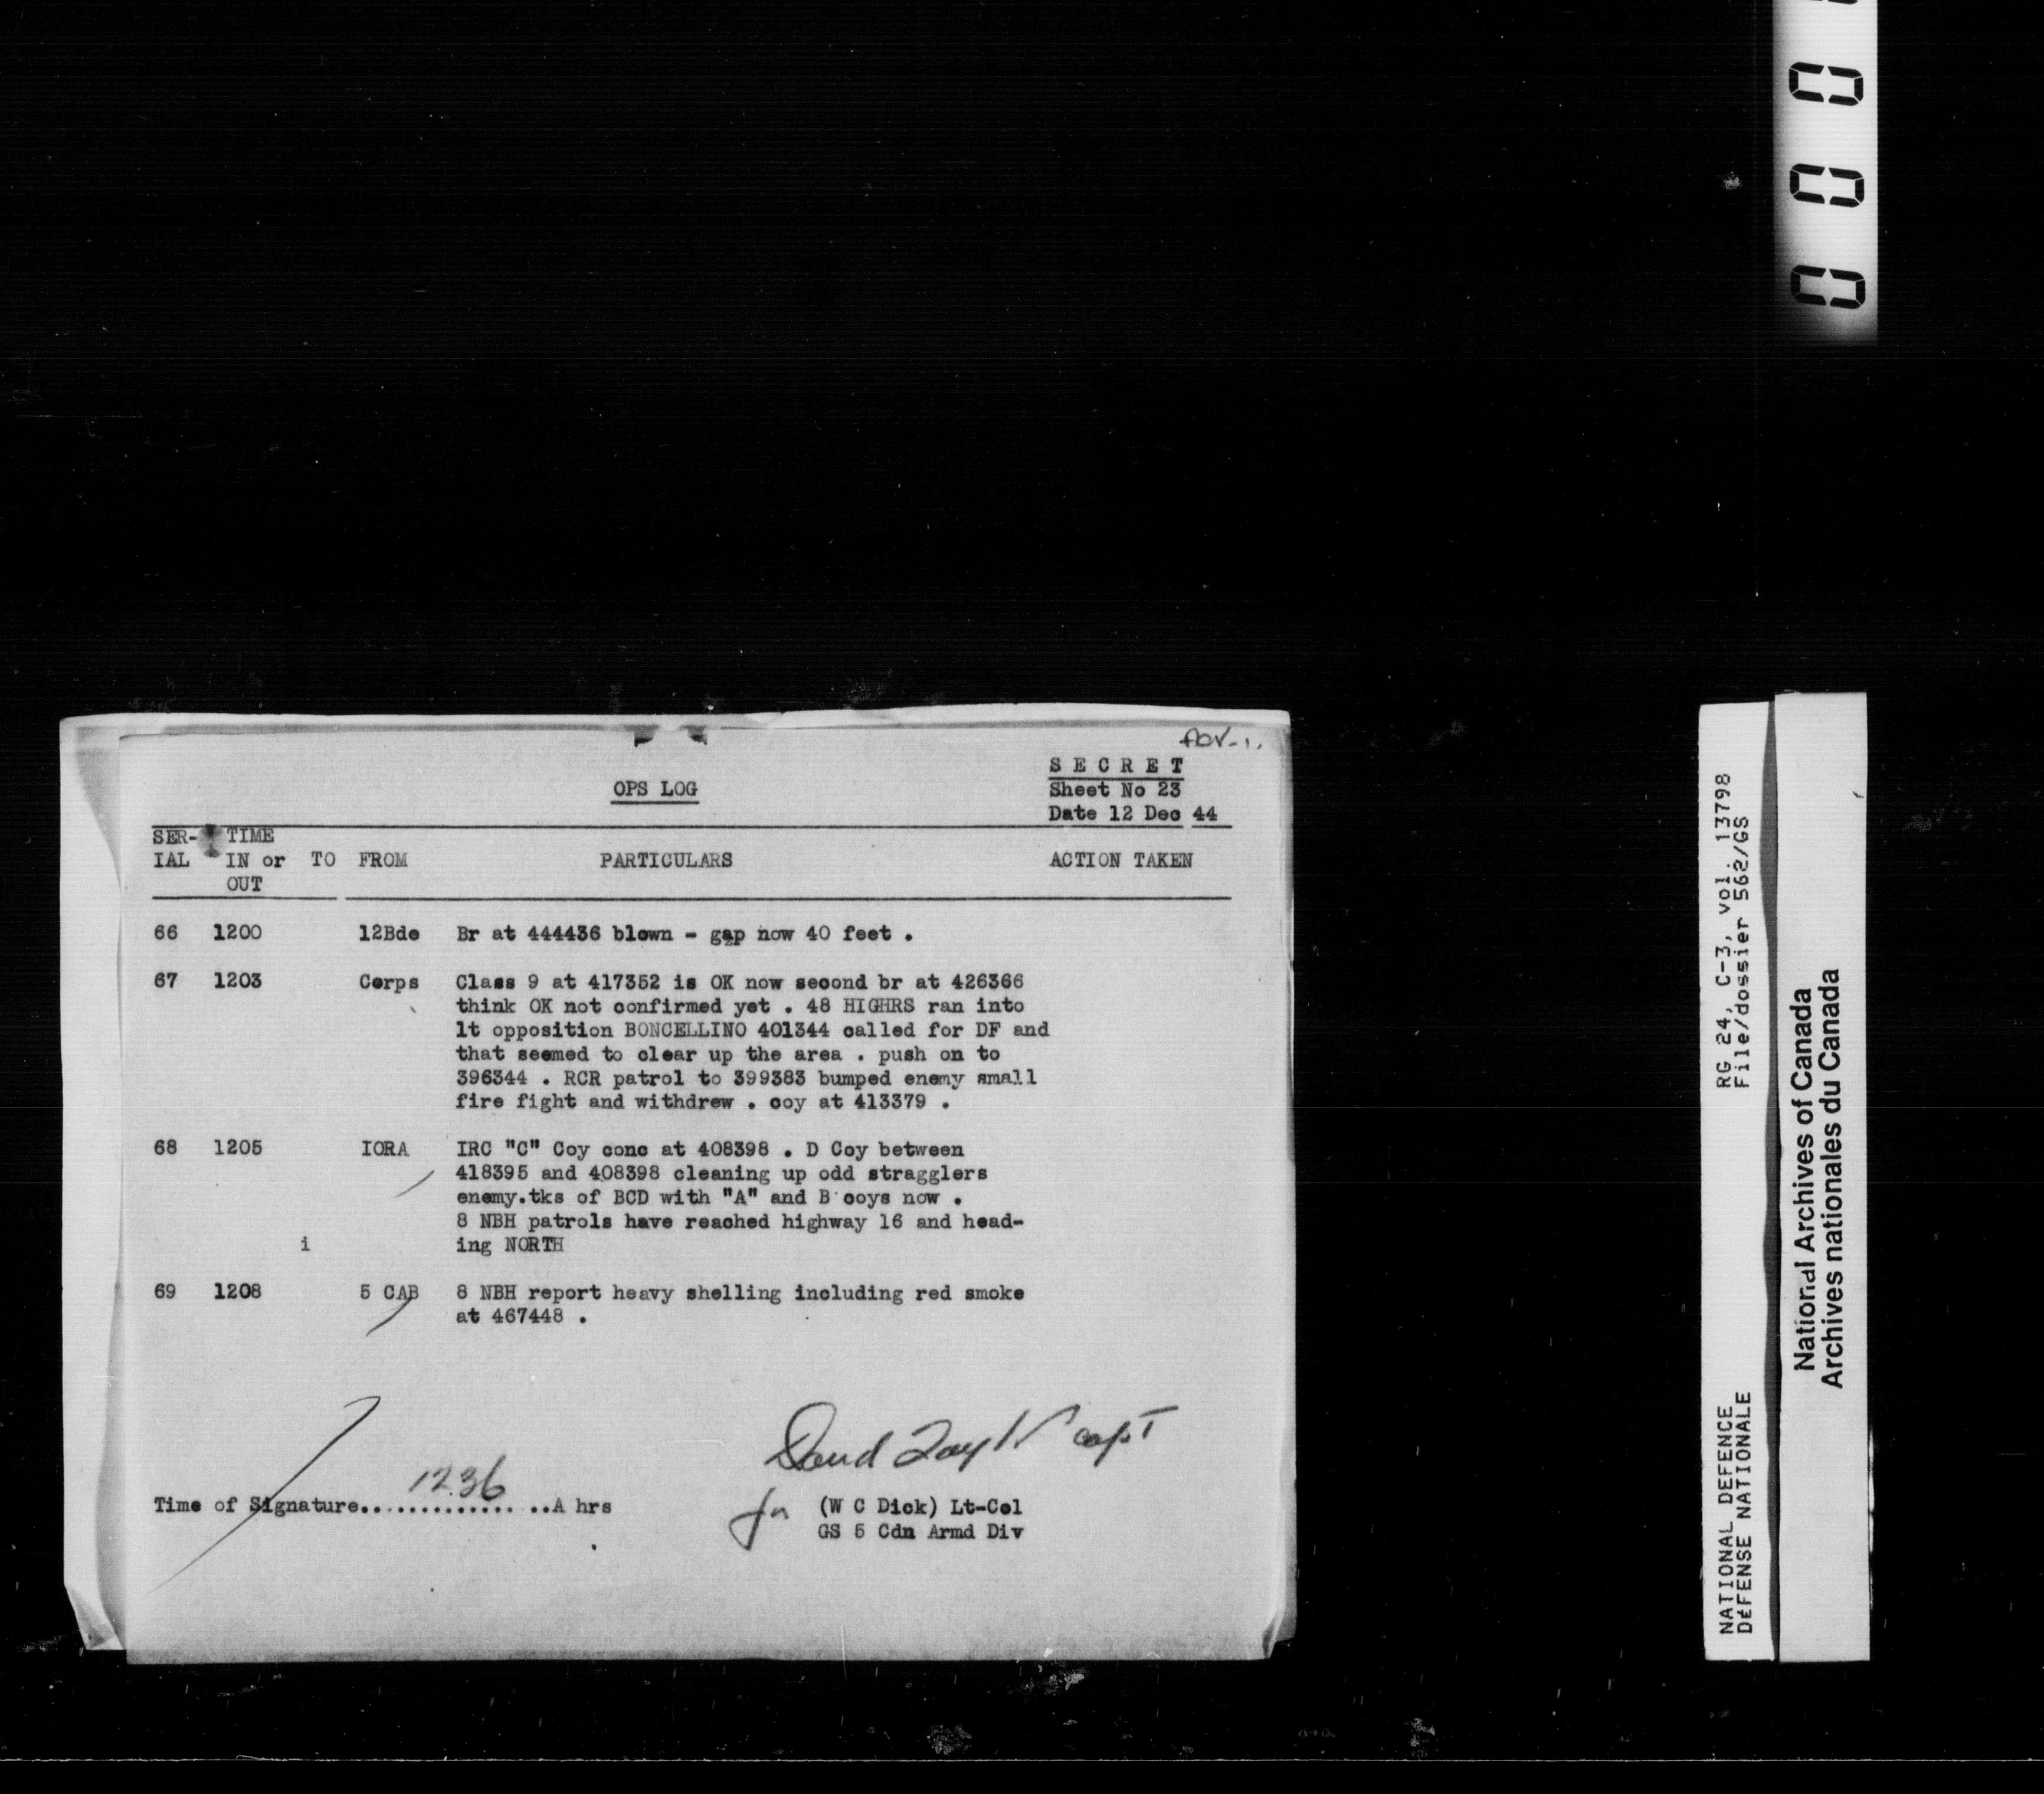 0 0 0
ADV-1.
S E C R E T
OPS LOG
Sheet No 23
Date 12 Dec 44
SER- TIME
IAL IN or TO FROM PARTICULARS ACTION TAKEN
OUT
66 1200 12Bde Br at 444436 blown - gap now 40 feet .
67 1203 Corps Class 9 at 417352 is OK now second br at 426366
think OK not confirmed yet . 48 HIGHRS ran into
lt opposition BONCELLINO 401344 called for DF and
that seemed to clear up the area . push on to
396344 . RCR patrol to 399383 bumped enemy small
fire fight and withdrew . coy at 413379 .
68 1205 IORA IRC "C" Coy conc at 408398 . D Coy between
418395 and 408398 cleaning up odd stragglers
enemy.tks of BCD with "A" and B coys now .
8 NBH patrols have reached highway 16 and head-
i ing NORTH
69 1208 5 CAB 8 NBH report heavy shelling including red smoke
at 467448 .
capt
1236
Time of Signature.................A hrs for (W C Dick) Lt-Col
GS 5 Cdn Armd Div
RG 24, C-3, vol. 13798
File/dossier 562/GS
NATIONAL DEFENCE
DÉFENSE NATIONALE
National Archives of Canada
Archives nationales du Canada